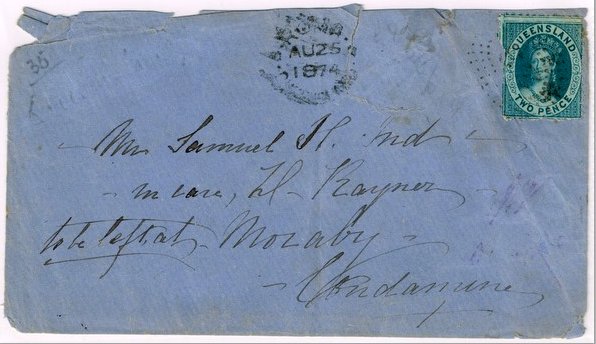 36
ROMA
AU 25
1874
QUEENSLAND
TWO PENCE
Mr Samuel H. Ind
in care, H. Rayner
to be left at Moraby
Condamine